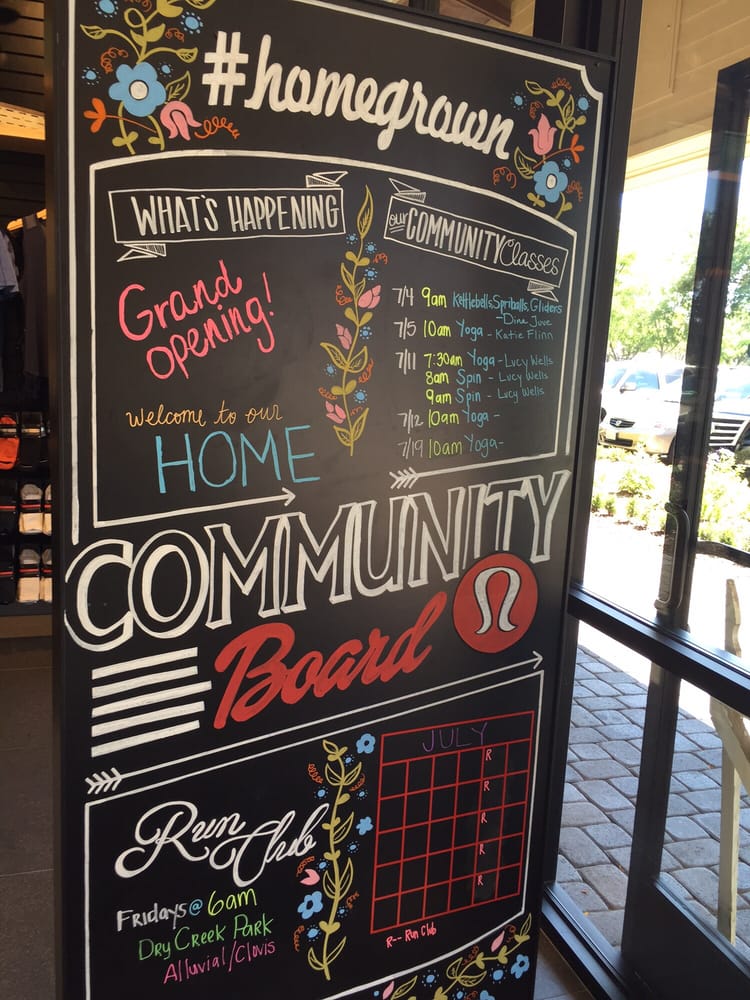 #homegrown
WHAT'S HAPPENING
Grand
opening!
Welcome to our
HOME
our COMMUNITY Classes
7/4 9am Kettlebells, Spriballs, Gliders
- Dina Juve
7/5 10am Yoga - Katie Flinn
7/11 7:30am Yoga - Lucy Wells
8am Spin - Lucy Wells
9am Spin - Lucy Wells
7/12 10am Yoga -
7/19 10am Yoga -
COMMUNITY
Board
Run Club
Fridays @ 6am
Dry Creek Park
Alluvial/Clovis
JULY
R
R
R
R
R
R-- Run Club